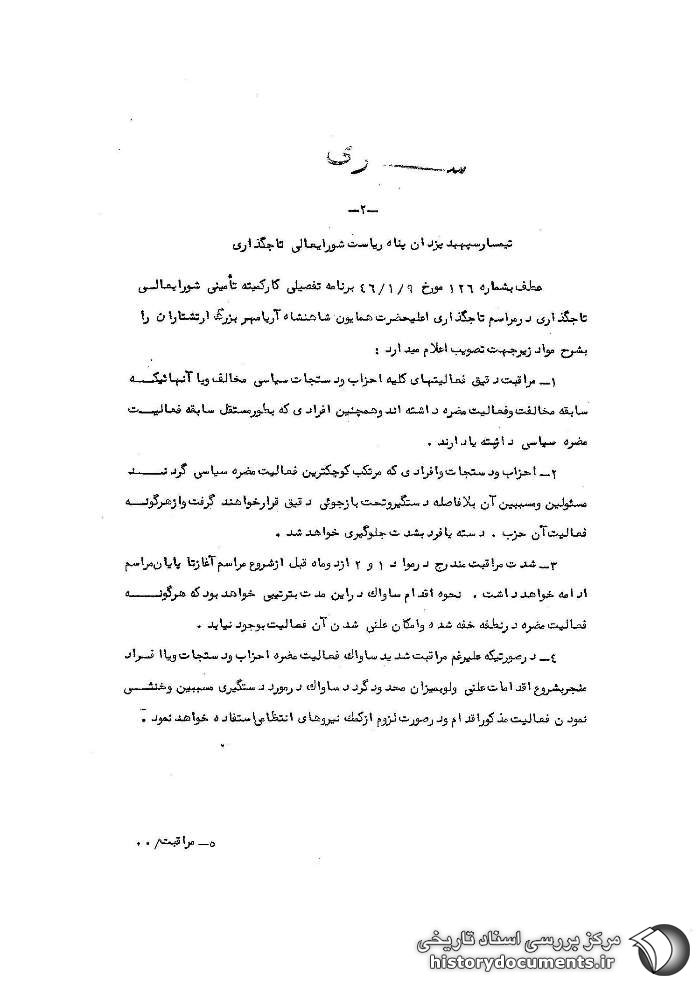 ســـری
-۲-
تیمسار سپهبد یزدان پناه ریاست شورایعالی تاجگذاری
عطف بشماره ۱۲۶ مورخ ۴۶/۱/۹ برنامه تفصیلی کارکمیته تأمینی شورایعالی
تاجگذاری درمراسم تاجگذاری اعلیحضرت همایون شاهنشاه آریامهر بزرگ ارتشتاران را
بشرح مواد زیرجهت تصویب اعلام میدارد :
۱- مراقبت دقیق فعالیتهای کلیه احزاب ودستجات سیاسی مخالف ویا آنهائیکه
سابقه مخالفت وفعالیت مضره داشته اند وهمچنین افرادی که بطورمستقل سابقه فعالیت
مضره سیاسی داشته یادارند .
۲- احزاب ودستجات وافرادی که مرتکب کوچکترین فعالیت مضره سیاسی گردند
مسئولین ومسببین آن بلافاصله دستگیروتحت بازجوئی دقیق قرارخواهند گرفت وازهرگونه
فعالیت آن حزب . دسته یافرد بشدت جلوگیری خواهد شد .
۳- شدت مراقبت مندرج درمواد ۱ و ۲ ازدوماه قبل ازشروع مراسم آغازتا پایان مراسم
ادامه خواهد داشت . نحوه اقدام ساواك دراین مدت بترتیبی خواهد بود که هرگونه
فعالیت مضره درنطفه خفه شده وامکان علنی شدن آن فعالیت بوجود نیاید .
۴- درصورتیکه علیرغم مراقبت شدید ساواك فعالیت مضره احزاب ودستجات ویاافراد
منجربشروع اقدامات علنی ولوبمیزان محدود گردد ساواك درمورد دستگیری مسببین وخنثی
نمودن فعالیت مذکوراقدام ودرصورت لزوم ازکمك نیروهای انتظامی استفاده خواهد نمود .
۵- مراقبت/۰۰
مرکز بررسی اسناد تاریخی
historydocuments.ir